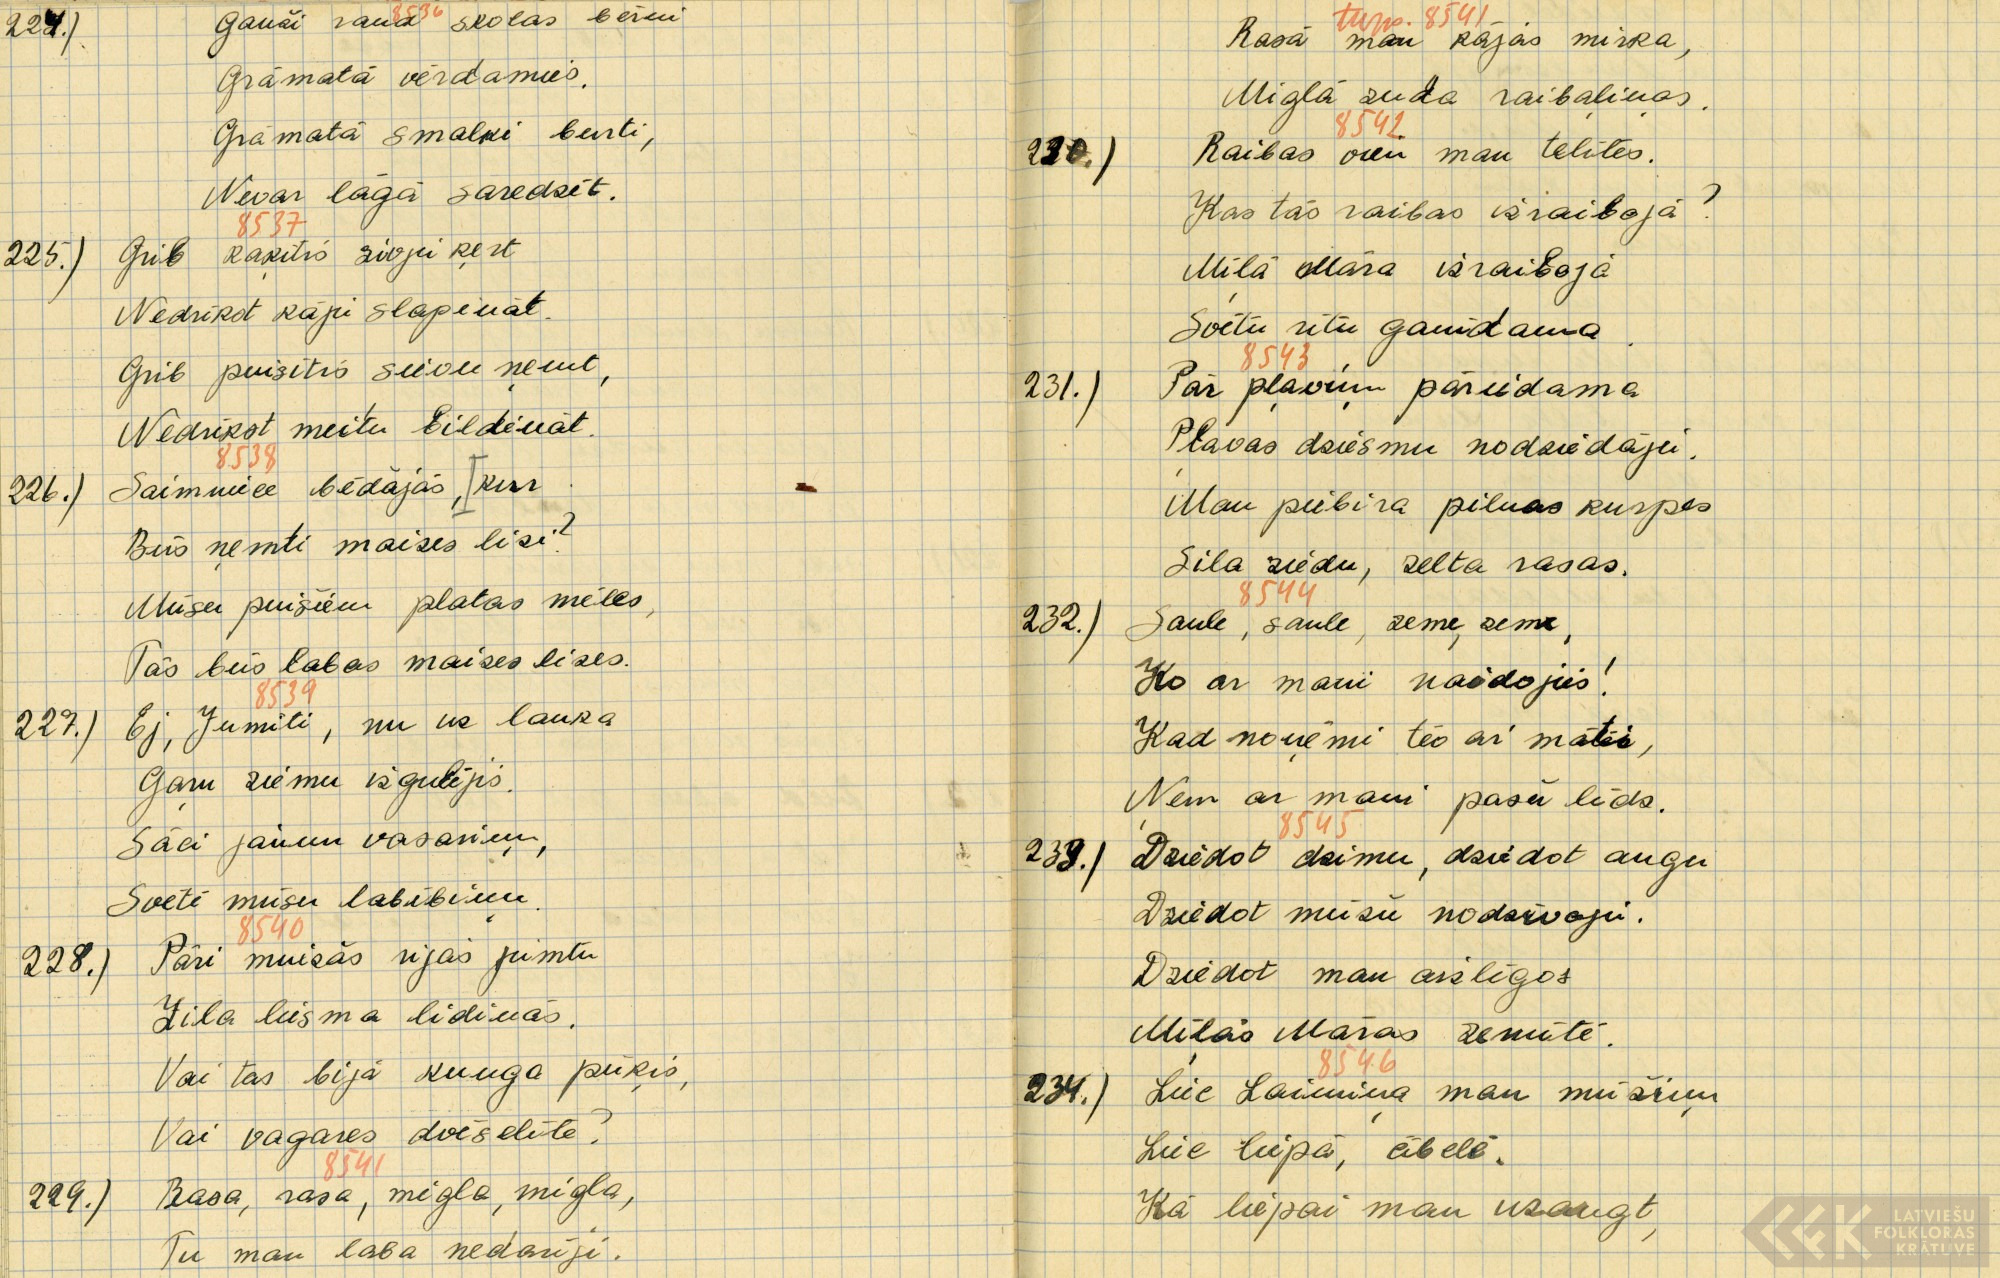 8536
224.) Gauži raud skolas bērni
Grāmatā vērdamies.
Grāmatā smalki burti,
Nevar lāgā saredzēt.
8537
225.) Grib kaķitis zivju ķert
Nedrīkst kāju slapināt.
Grib puisītis sievu ņemt,
Nedrīkst meitu bildināt.
8538
226.) Saimniece bēdājās, kur
Būs ņemti maizes lizi?
Mūsu puišiem platas mēles,
Tās būs labas maizes lizes.
8539
227.) Ej, Jumīti, nu uz lauka
Gaŗu ziemu izgulējis.
Sāci jaunu vasariņu,
Svētī mūsu labībiņu.
8540
228.) Pāri muižās rijas jumtu
Zila liesma lidinās.
Vai tas bijā kunga pūķis,
Vai vagares dvēselīte?
8541
229.) Rasa, rasa, migla, migla,
Tu man laba nedarīji.
turp. 8541
Rasā man kājas mirka,
Miglā zuda raibaļiņas.
8542
230.) Raibas vien man telītes.
Kas tās raibas izraibojā?
Mīļā Māra izraibojā
Svētu rītu ganīdama.
8543
231.) Pār pļaviņu pāreidama
Pļavas dziesmu nodziedāju.
Man piebira pilnas kurpes
Sila ziedu, zelta rasas.
8544
232.) Saule, saule, zeme, zeme,
Ko ar mani naidojies!
Kad noņēmi tēv ar māti,
Ņem ar mani pašu līdz.
8545
233.) Dziedot dzimu, dziedot augu
Dziedot mūžu nodzīvoju.
Dziedot man aizlīgos
Mīļās Māras zemītē.
8546
234.) Liec Laimiņa man mūžiņu
Liec liepā, ābelē.
Kā liepai man uzaugt,
LATVIEŠU
FOLKLORAS
KRĀTUVE